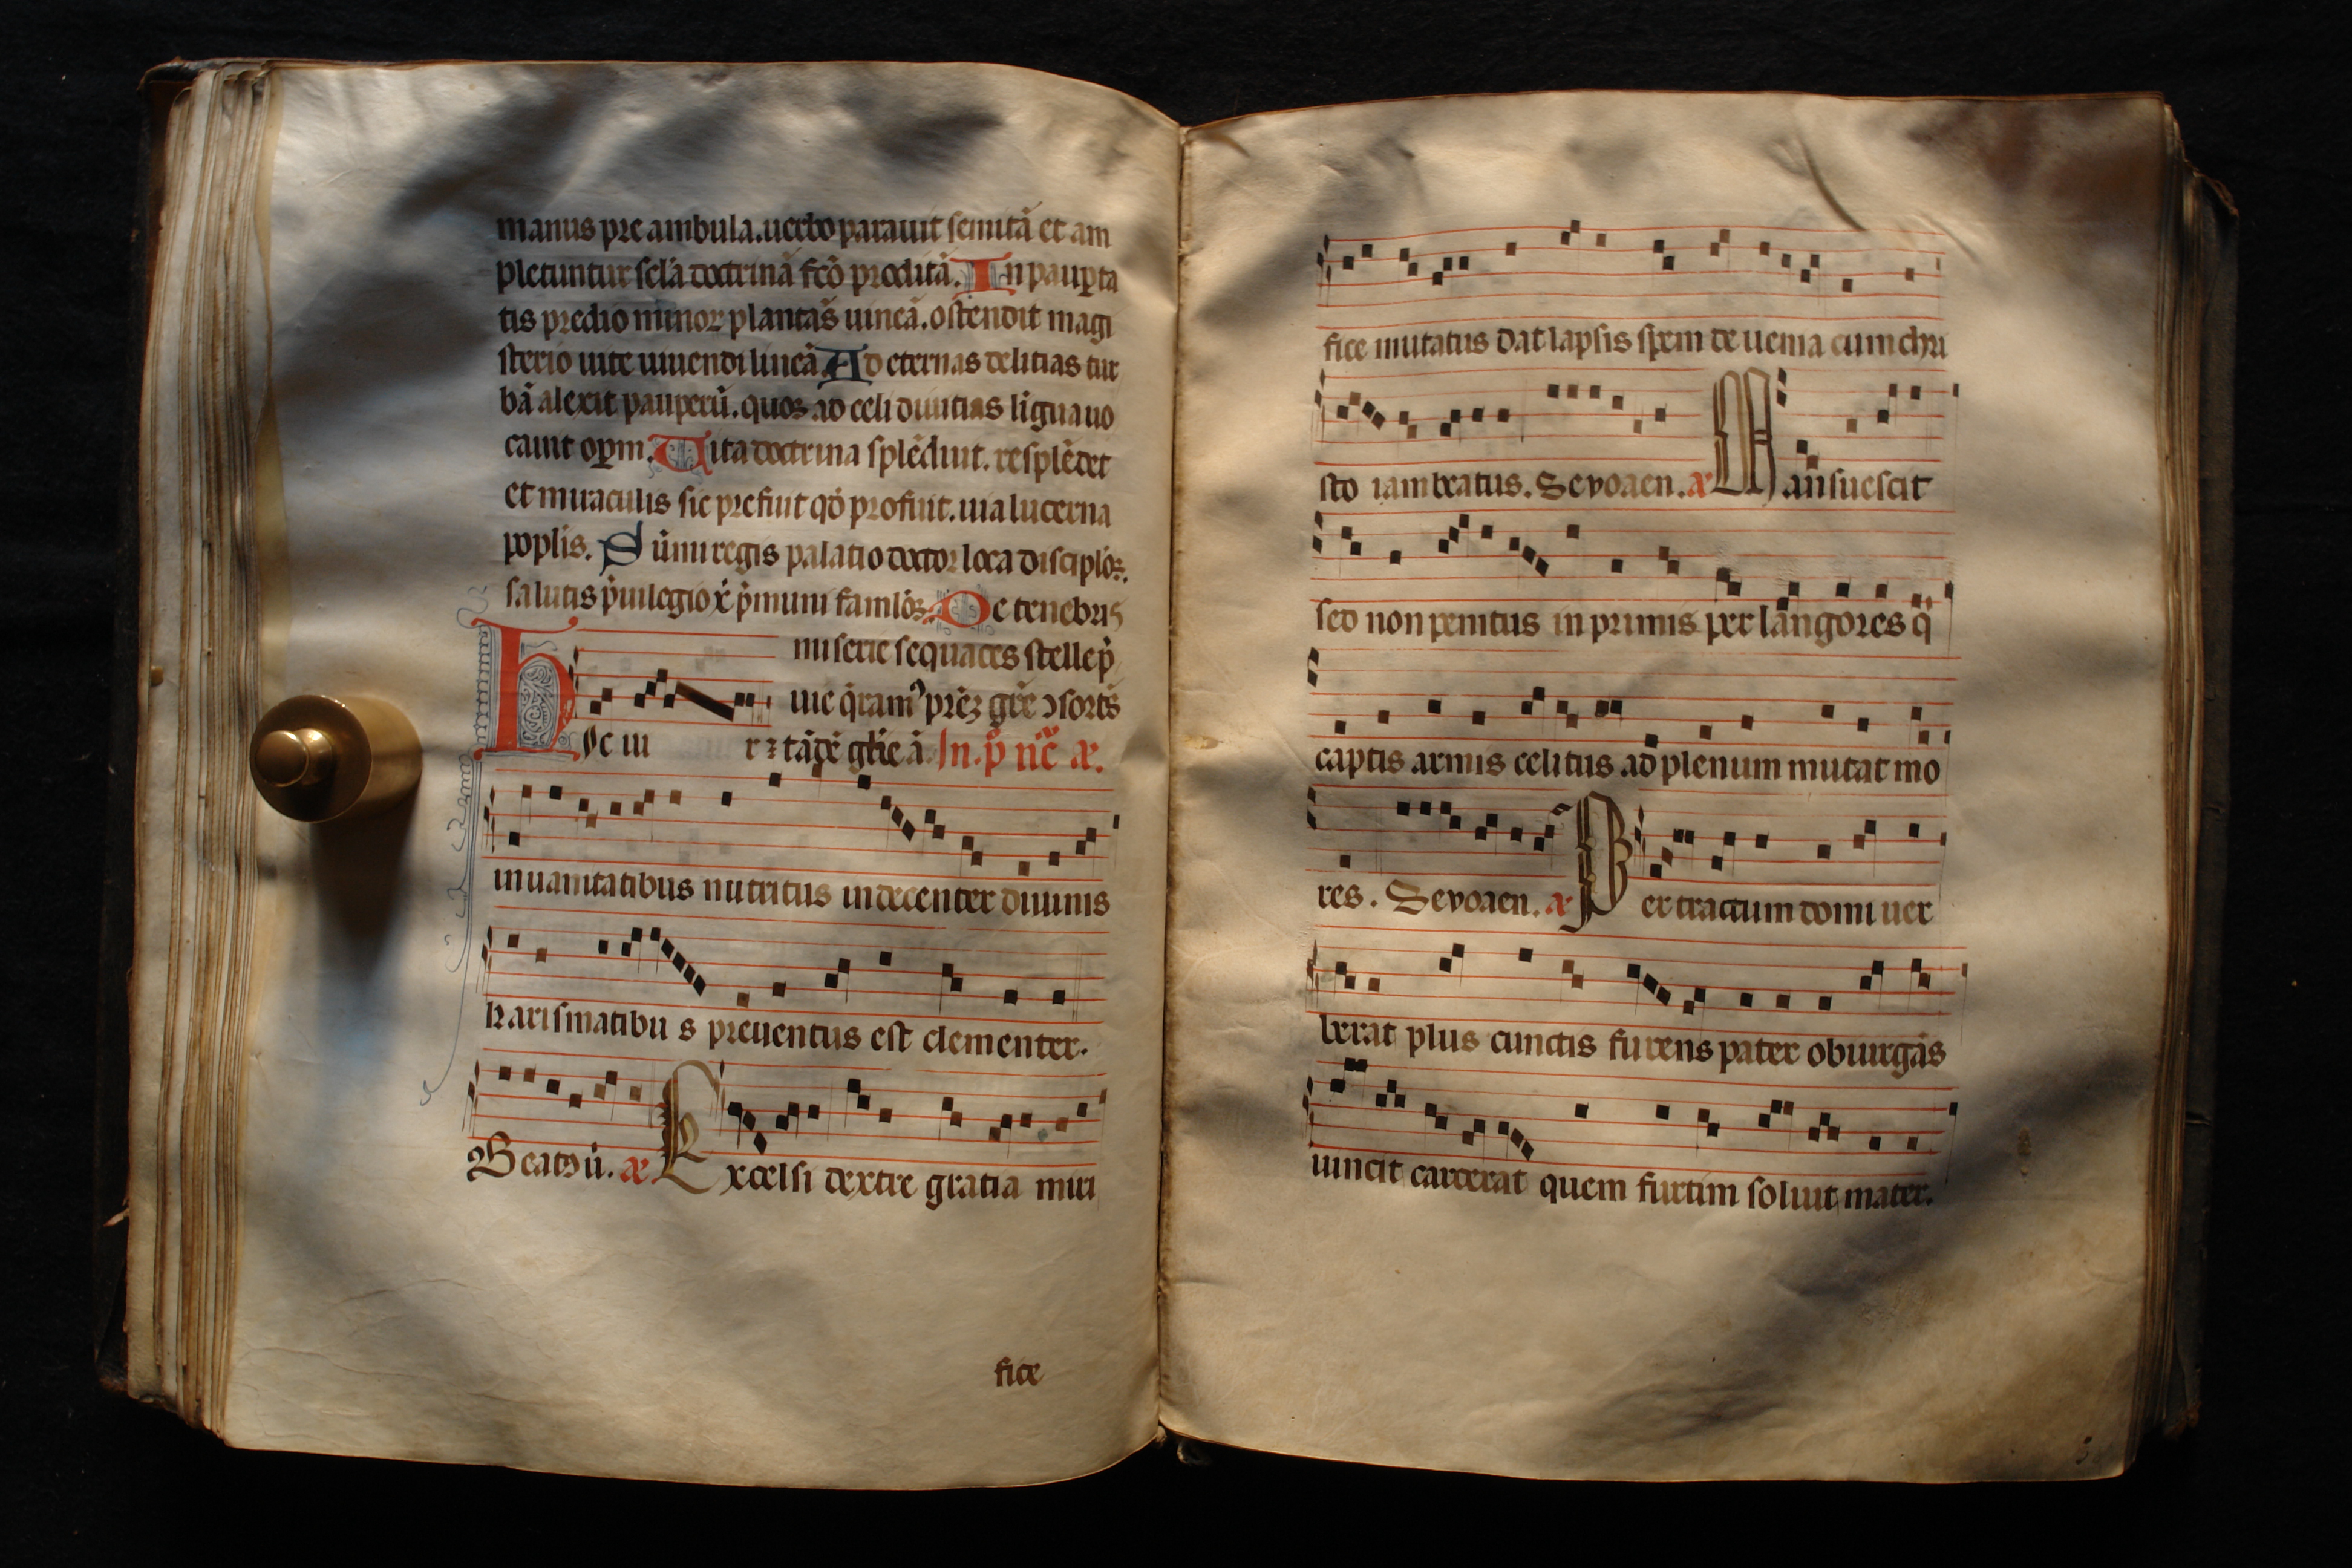 manus pre ambula.uerbo parauit semitā et am
pletuntur sclā doctrinā fcō proditā. In paupta
tis predio minor plantās uineā.ostendit magi
sterio uite uiuendi lineā Ad eternas delitias tur
bā alexit pauperū.quos ad celi diuitias ligua uo
cauit opm. Uita doctrina splēduit.resplēdet
et miraculis sic prefuit qō profuit.uia lucerna
poplis. Sūmi regis palatio doctor loca disciplōꝝ.
salutis p̄uilegio p̄muni famlōꝝ. De tenebris
miserie sequaces stelle p̄
uie q̄ram⁹ prēꝫ grē ↄsortēs
Hic ui r ⁊ tādē glīe ā. In.p̄ nc̄ æ.
in uanitatibus nutritus indecenter diuinis
karismatibu s preuentus est clementer.
Seatoū. æ Excelsi dextre gratia miri
fice
fice mutatus dat lapsis spem de uenia cum chri
sto iam beatus. Seuoaen. æ Mansuescit
sed non penitus in primis per langores q̄
captis armis celitus ad plenum mutat mo
res. Seuoaen. æ Per tractum domi uer
berat plus cunctis furens pater obiurgās
uincit carcerat quem furtim soluit mater.